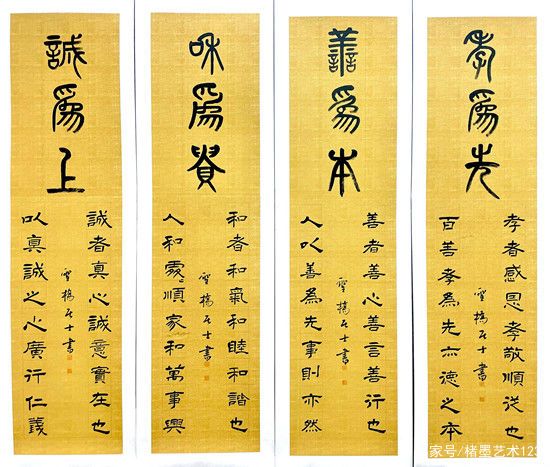 孝爲先
孝者感恩孝敬順從也
百善孝為先亦德之本
雲橋居士書
善爲本
善者善心善言善行也
人以善為先事則亦然
雲橋居士書
和爲貴
和者和氣和睦和諧也
人和處順家和萬事興
雲橋居士書
誠爲上
誠者真心誠意實在也
以真誠之心廣行仁義
雲橋居士書
家号/楮墨艺术123